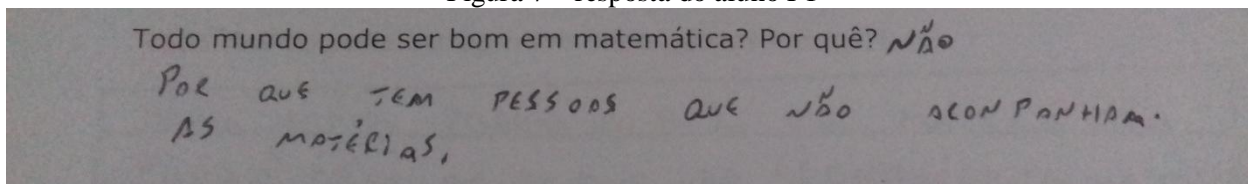 Todo mundo pode ser bom em matemática? Por quê? NÃO
POR QUE TEM PESSOAS QUE NÃO ACONPANHAM.
AS MATÉRIAS,